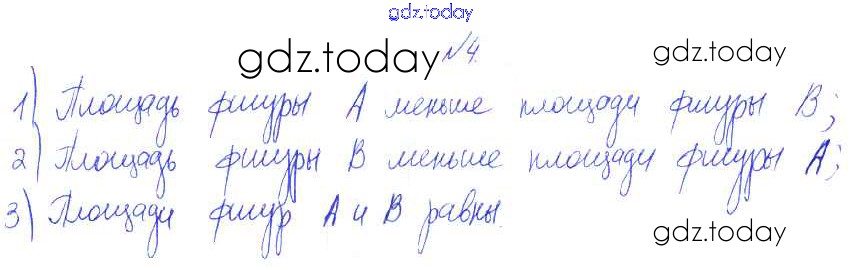 gdz.today
gdz.today №4. gdz.today
1) Площадь фигуры A меньше площади фигуры B;
2) Площадь фигуры B меньше площади фигуры A;
3) Площади фигур A и B равны.
gdz.today